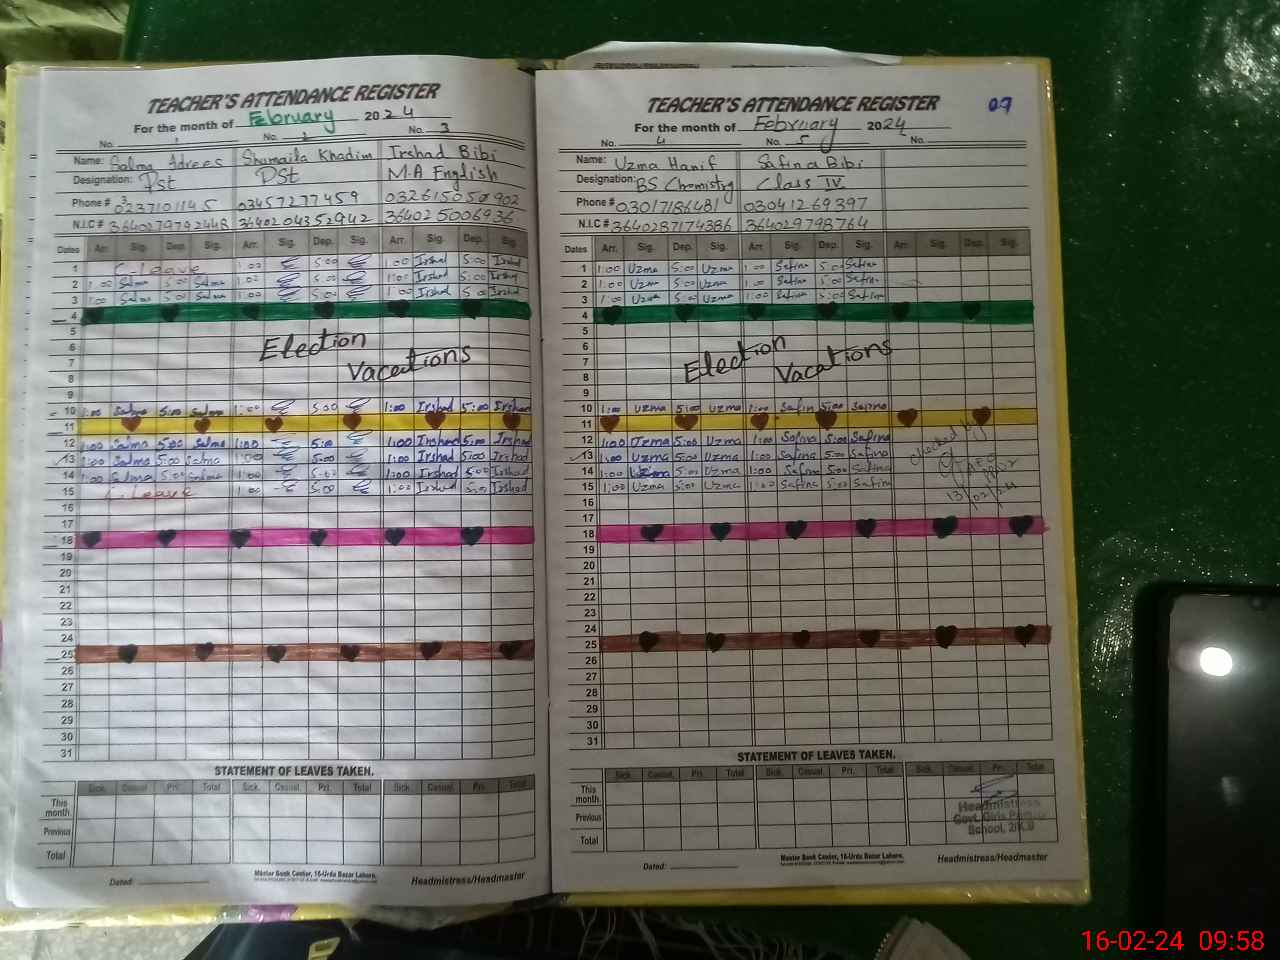 TEACHER'S ATTENDANCE REGISTER
For the month of February 2024
No. 1 No. 2 No. 3
Name: Salma Adrees Shumaila Khadim Irshad Bibi
Designation: Pst PSt M.A English
Phone # 03457277459
N.I.C # 3640204352942 364025006936
Dates Arr. Sig. Dep. Sig. Arr. Sig. Dep. Sig. Arr. Sig. Dep. Sig.
1 C-Leave 1:00 5:00 1:00 Irshad 5:00 Irshad
2 1:00 Salma 5:00 Salma 1:00 5:00 1:00 Irshad 5:00 Irshad
3 1:00 Salma 5:00 Salma 1:00 5:00 1:00 Irshad 5:00 Irshad
4
5
6 Election
7 Vacations
8
9
10 1:00 Salma 5:00 Salma 1:00 5:00 1:00 Irshad 5:00 Irshad
11
12 1:00 Salma 5:00 Salma 1:00 5:00 1:00 Irshad 5:00 Irshad
13 1:00 Salma 5:00 Salma 1:00 5:00 1:00 Irshad 5:00 Irshad
14 1:00 Salma 5:00 Salma 1:00 5:00 1:00 Irshad 5:00 Irshad
15 C.Leave 1:00 5:00 1:00 Irshad 5:00 Irshad
16
17
18
19
20
21
22
23
24
25
26
27
28
29
30
31
STATEMENT OF LEAVES TAKEN.
Sick. Casual. Pri. Total Sick. Casual. Pri. Total Sick. Casual. Pri. Total
This month
Previous
Total
Master Book Center, 16-Urdu Bazar Lahore.
Dated: Headmistress/Headmaster
TEACHER'S ATTENDANCE REGISTER 09
For the month of February 2024
No. 4 No. 5 No.
Name: Uzma Hanif Safina Bibi
Designation: BS Chemistry Class IV
Phone # 03017186481 03041269397
N.I.C # 3640287174386 364029798764
Dates Arr. Sig. Dep. Sig. Arr. Sig. Dep. Sig. Arr. Sig. Dep. Sig.
1 1:00 Uzma 5:00 Uzma 1:00 Safina 5:00 Safina
2 1:00 Uzma 5:00 Uzma 1:00 Safina 5:00 Safina
3 1:00 Uzma 5:00 Uzma 1:00 Safina 5:00 Safina
4
5
6 Election
7 Vacations
8
9
10 1:00 Uzma 5:00 Uzma 1:00 Safina 5:00 Safina
11
12 1:00 Uzma 5:00 Uzma 1:00 Safina 5:00 Safina
13 1:00 Uzma 5:00 Uzma 1:00 Safina 5:00 Safina
14 1:00 Uzma 5:00 Uzma 1:00 Safina 5:00 Safina
15 1:00 Uzma 5:00 Uzma 1:00 Safina 5:00 Safina
Checked by
13/02/24
16
17
18
19
20
21
22
23
24
25
26
27
28
29
30
31
STATEMENT OF LEAVES TAKEN.
Sick. Casual. Pri. Total Sick. Casual. Pri. Total Sick. Casual. Pri. Total
This month
Previous
Total
Headmistress
Govt. Girls Primary
School, 2/K.B
Master Book Center, 16-Urdu Bazar Lahore.
Dated: Headmistress/Headmaster
16-02-24 09:58